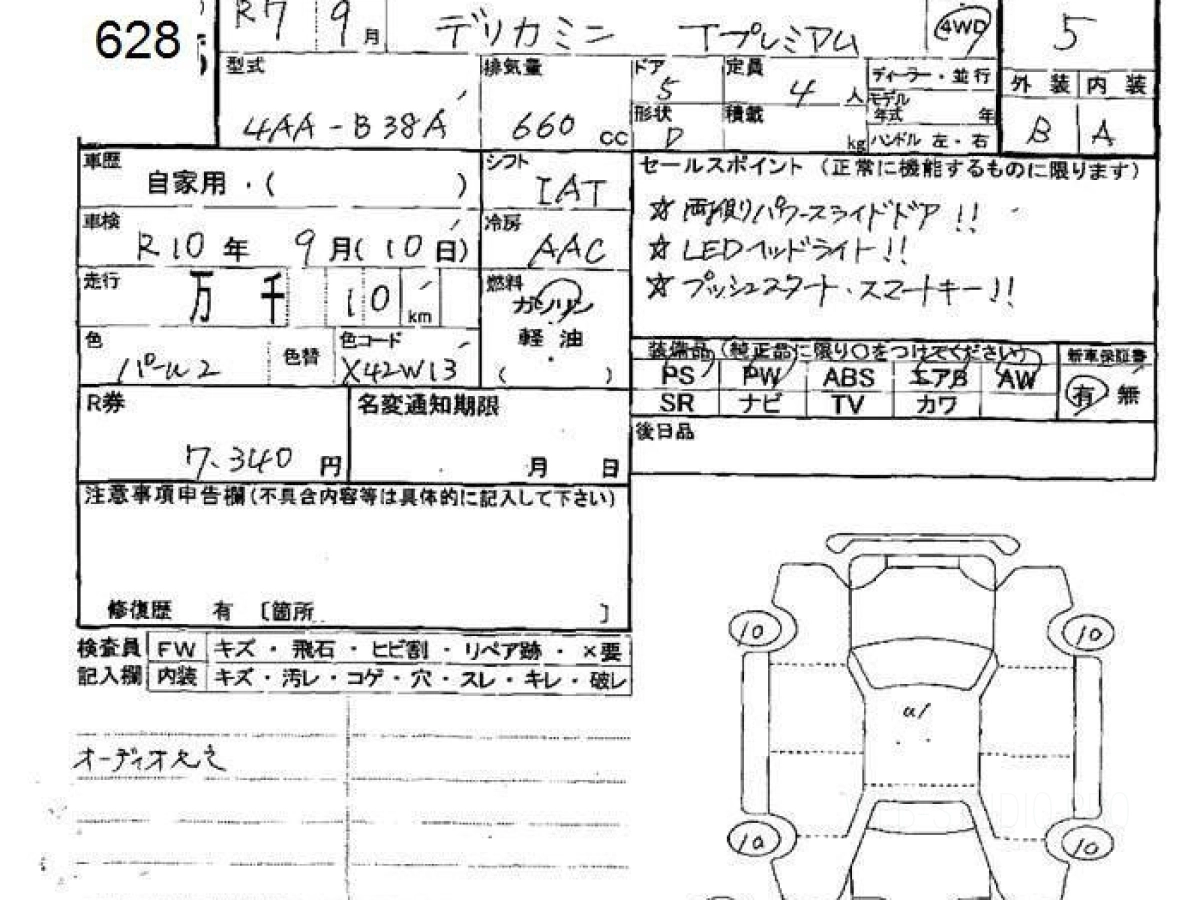 628
5
R7 9月 デリカミニ Tプレミアム 4WD 5
型式 4AA-B38A
排気量 660 CC
ドア 5
定員 4 人
形状 D
積載 kg
ディーラー・並行
モデル年式 年
ハンドル 左・右
外装 内装
B A
車歴 自家用・( )
シフト IAT
車検 R10年 9月(10日)
冷房 AAC
走行 万 千 10 km
燃料 ガソリン
軽油
( )
色 パール2
色替
色コード X42W13
R券 7,340 円
名変通知期限 月 日
セールスポイント (正常に機能するものに限ります)
☆ 両側パワースライドドア!!
☆ LEDヘッドライト!!
☆ プッシュスタート・スマートキー!!
装備品(純正品に限り○をつけてください)
新車保証書
PS PW ABS エアB AW
SR ナビ TV カワ
有 無
後日品
注意事項申告欄(不具合内容等は具体的に記入して下さい)
修復歴 有 〔箇所 〕
検査員 FW キズ・飛石・ヒビ割・リペア跡・×要
記入欄 内装 キズ・汚レ・コゲ・穴・スレ・キレ・破レ
10 10
10 10